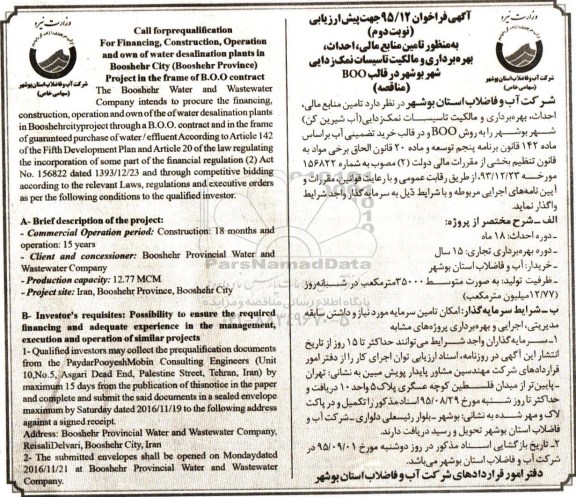 Call forprequalification
For Financing, Construction, Operation
and own of water desalination plants in
Booshehr City (Booshehr Province)
Project in the frame of B.O.O contract
The Booshehr Water and Wastewater
Company intends to procure the financing,
construction, operation and own of the of water desalination plants
in Booshehrcityproject through a B.O.O. contract and in the frame
of guaranteed purchase of water / effluent According to Article 142
of the Fifth Development Plan and Article 20 of the law regulating
the incorporation of some part of the financial regulation (2) Act
No. 156822 dated 1393/12/23 and through competitive bidding
according to the relevant Laws, regulations and executive orders
as per the following conditions to the qualified investor.
A- Brief description of the project:
- Commercial Operation period: Construction: 18 months and
operation: 15 years
- Client and concessioner: Booshehr Provincial Water and
Wastewater Company
- Production capacity: 12.77 MCM
- Project site: Iran, Booshehr Province, Booshehr City
B- Investor's requisites: Possibility to ensure the required
financing and adequate experience in the management,
execution and operation of similar projects
1- Qualified investors may collect the prequalification documents
from the PaydarPooyeshMobin Consulting Engineers (Unit
10,No.5, Asgari Dead End, Palestine Street, Tehran, Iran) by
maximum 15 days from the publication of thisnotice in the paper
and complete and submit the said documents in a sealed envelope
maximum by Saturday dated 2016/11/19 to the following address
against a signed receipt.
Address: Booshehr Provincial Water and Wastewater Company,
ReisaliDelvari, Booshehr City, Iran
2- The submitted envelopes shall be opened on Mondaydated
2016/11/21 at Booshehr Provincial Water and Wastewater
Company.
وزارت نیرو
شرکت آب و فاضلاب استان بوشهر
(سهامی خاص)
آگهی فراخوان ۹۵/۱۲ جهت پیش ارزیابی
(نوبت دوم)
به‌منظور تامین منابع مالی، احداث،
بهره‌برداری و مالکیت تاسیسات نمک‌زدایی
شهر بوشهر در قالب BOO
(مناقصه)
وزارت نیرو
شرکت آب و فاضلاب استان بوشهر
(سهامی خاص)
شرکت آب و فاضلاب استان بوشهر در نظر دارد تامین منابع مالی،
احداث، بهره‌برداری و مالکیت تاسیسات نمک‌زدایی (آب شیرین کن)
شهر بوشهر را به روش BOO و در قالب خرید تضمینی آب براساس
ماده ۱۴۲ قانون برنامه پنجم توسعه و ماده ۲۰ قانون الحاق برخی مواد به
قانون تنظیم بخشی از مقررات مالی دولت (۲) مصوب به شماره ۱۵۶۸۲۲
مورخه ۹۳/۱۲/۲۳، از طریق رقابت عمومی و با رعایت قوانین، مقررات و
آیین نامه‌های اجرایی مربوطه و با شرایط ذیل به سرمایه گذار واجد شرایط
واگذار نماید.
الف - شرح مختصر از پروژه:
- دوره احداث: ۱۸ ماه
- دوره بهره‌برداری تجاری: ۱۵ سال
- خریدار: آب و فاضلاب استان بوشهر
- ظرفیت تولید: به صورت متوسط ۳۵۰۰۰ مترمکعب در شبانه‌روز
(۱۲/۷۷ میلیون مترمکعب)
ب - شرایط سرمایه گذار: امکان تامین سرمایه مورد نیاز و داشتن سابقه
مدیریتی، اجرایی و بهره‌برداری پروژه‌های مشابه
۱- سرمایه گذاران واجد شرایط می‌توانند حداکثر تا ۱۵ روز از تاریخ
انتشار این آگهی در روزنامه، اسناد ارزیابی توان اجرای کار را از دفتر امور
قراردادهای شرکت مهندسین مشاور پایدار پویش مبین به نشانی: تهران
- پایین‌تر از میدان فلسطین کوچه عسگری پلاک ۵ واحد ۱۰ دریافت و
حداکثر تا روز شنبه مورخ ۹۵/۰۸/۲۹ اسناد مذکور را تکمیل و در پاکت
لاک و مهر شده به نشانی: بوشهر - بلوار رئیسعلی دلواری - شرکت آب و
فاضلاب استان بوشهر تحویل و رسید دریافت دارند.
۲- تاریخ بازگشایی اسناد مذکور در روز دوشنبه مورخ ۹۵/۰۹/۰۱ در
شرکت آب و فاضلاب استان بوشهر می‌باشد.
دفتر امور قراردادهای شرکت آب و فاضلاب استان بوشهر
ParsNamadData
پایگاه اطلاع رسانی مناقصه و مزایده